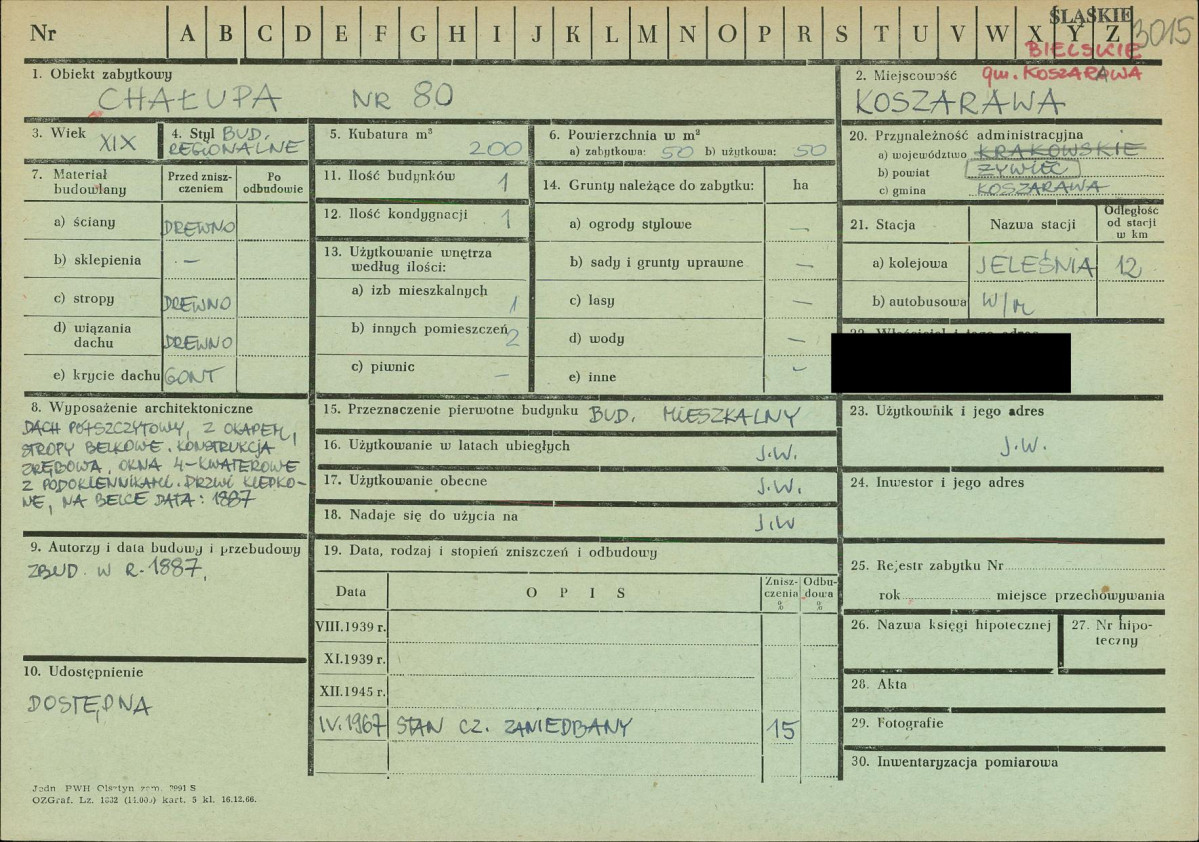 Nr A B C D E F G H I J K L M N O P R S T U V W X Y Z
ŚLĄSKIE 3015
BIELSKIE
gm. KOSZARAWA
1. Obiekt zabytkowy
CHAŁUPA NR 80
2. Miejscowość
KOSZARAWA
3. Wiek XIX
4. Styl BUD.
REGIONALNE
5. Kubatura m³
200
6. Powierzchnia w m²
a) zabytkowa: 50 b) użytkowa: 50
7. Materiał budowlany
Przed zniszczeniem
Po odbudowie
a) ściany DREWNO
b) sklepienia —
c) stropy DREWNO
d) wiązania dachu DREWNO
e) krycie dachu GONT
8. Wyposażenie architektoniczne
DACH PÓŁSZCZYTOWY, Z OKAPEM,
STROPY BELKOWE. KONSTRUKCJA
ZRĘBOWA, OKNA 4-KWATEROWE
Z PODOKIENNIKAMI. DRZWI KLEPKO-
NE, NA BELCE DATA: 1887
9. Autorzy i data budowy i przebudowy
ZBUD. W R. 1887.
10. Udostępnienie
DOSTĘPNA
11. Ilość budynków 1
12. Ilość kondygnacji 1
13. Użytkowanie wnętrza
według ilości:
a) izb mieszkalnych 1
b) innych pomieszczeń 2
c) piwnic —
14. Grunty należące do zabytku: ha
a) ogrody stylowe —
b) sady i grunty uprawne —
c) lasy —
d) wody —
e) inne —
15. Przeznaczenie pierwotne budynku BUD. MIESZKALNY
16. Użytkowanie w latach ubiegłych J.W.
17. Użytkowanie obecne J.W.
18. Nadaje się do użycia na J.W
19. Data, rodzaj i stopień zniszczeń i odbudowy
Data OPIS Zniszczenia % Odbudowa %
VIII.1939 r.
XI.1939 r.
XII.1945 r.
IV.1967 STAN CZ. ZANIEDBANY 15
20. Przynależność administracyjna
a) województwo KRAKOWSKIE
b) powiat ŻYWIEC
c) gmina KOSZARAWA
21. Stacja Nazwa stacji Odległość od stacji w km
a) kolejowa JELEŚNIA 12
b) autobusowa W/M
23. Użytkownik i jego adres
J.W.
24. Inwestor i jego adres
25. Rejestr zabytku Nr
rok miejsce przechowywania
26. Nazwa księgi hipotecznej
27. Nr hipo-
teczny
28. Akta
29. Fotografie
30. Inwentaryzacja pomiarowa
Jedn PWH Olsztyn zam. 2991 S
OZGraf. Lz. 1332 kart. 5 kl. 16.12.66.